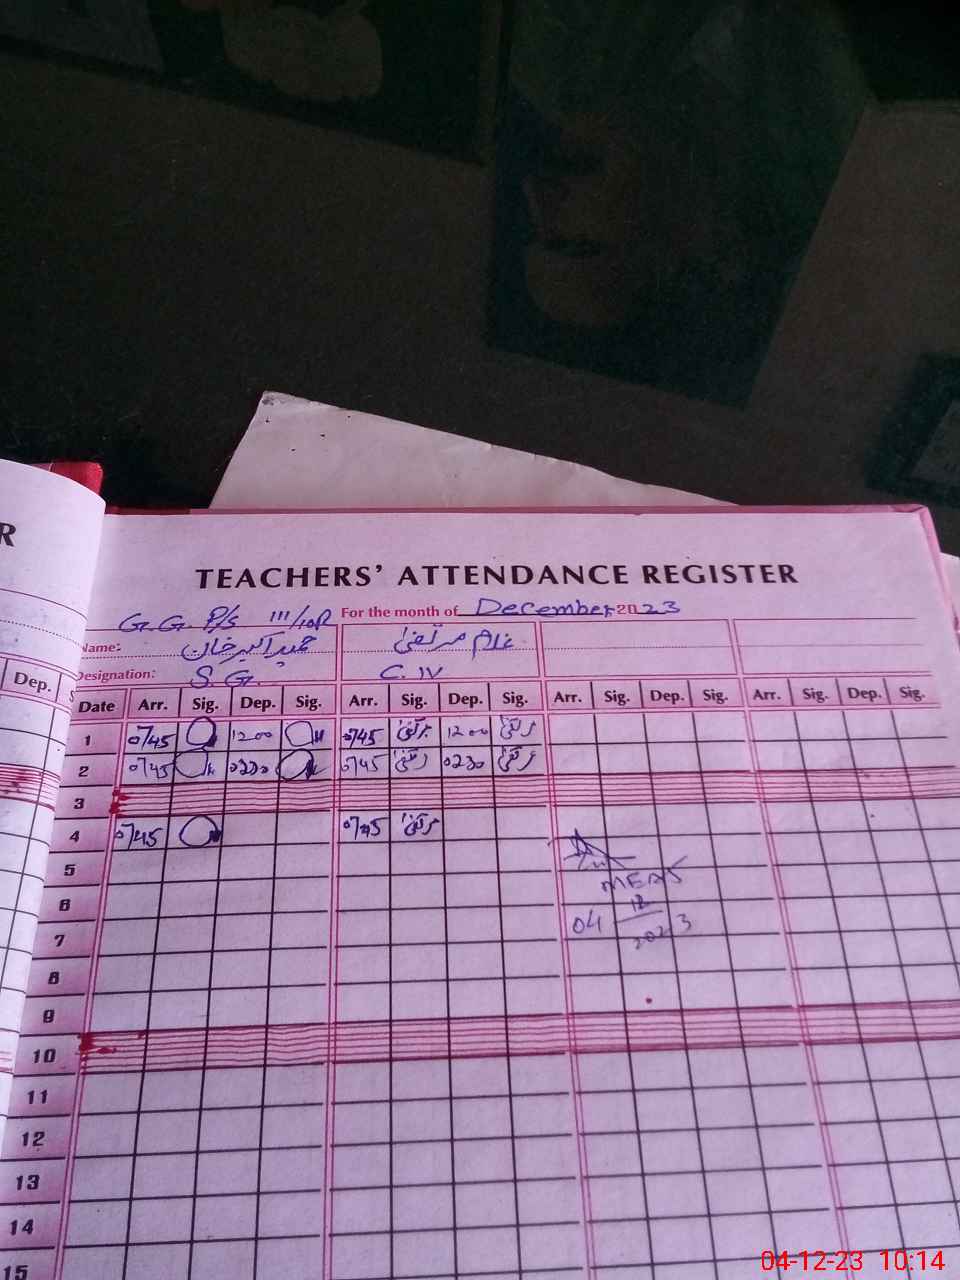 R
TEACHERS' ATTENDANCE REGISTER
G.G. P/S 111/10R For the month of December, 2023
Name: حمیرا اکبر خان غلام مرتضیٰ
Designation: S.G. C.IV
Dep. S
Date Arr. Sig. Dep. Sig. Arr. Sig. Dep. Sig. Arr. Sig. Dep. Sig. Arr. Sig. Dep. Sig.
1 0745 1200 0745 مرتضیٰ 1200 مرتضیٰ
2 0745 0230 0745 مرتضیٰ 0230 مرتضیٰ
3
4 0745 0745 مرتضیٰ
5
MEAS
6
04 12 2023
7
8
9
10
11
12
13
14
15
04-12-23 10:14